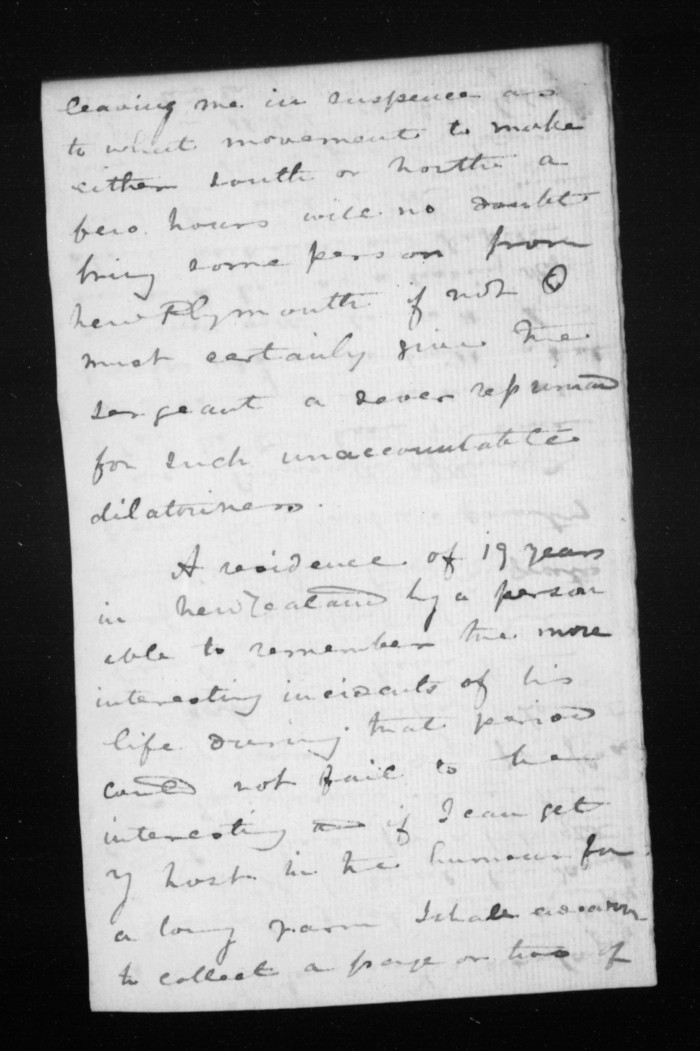 leaving me in suspence as
to what movement to make
either south or north a
few hours will no doubt
bring some person from
New Plymouth if not I
must certainly give the
sergeant a sever reprimand
for such unaccountable
dilatoriness.
A residence of 19 years
in New Zealand by a person
able to remember the more
interesting incidents of his
life during that period
could not fail to be
interesting if I can get
my host in the humour for
a long yarn I shall
to collect a page or two of